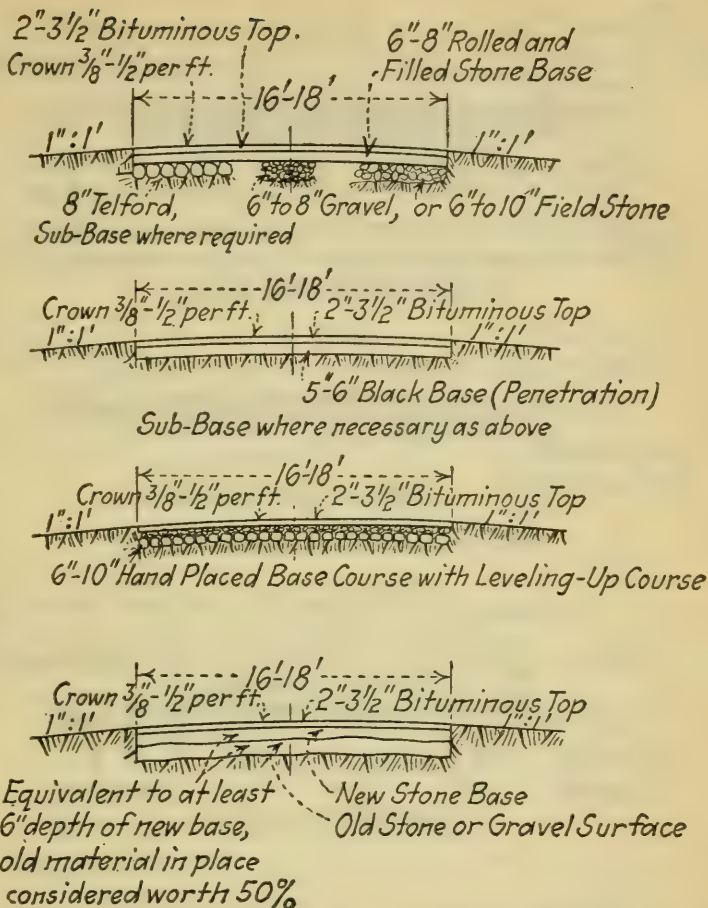 2"-3½" Bituminous Top.
Crown ⅜"-½" per ft.
6"-8" Rolled and
Filled Stone Base
16'-18'
1":1' 1":1'
8" Telford, 6" to 8" Gravel, or 6" to 10" Field Stone
Sub-Base where required
16'-18'
Crown ⅜"-½" per ft. 2"-3½" Bituminous Top
1":1' 1":1'
5"-6" Black Base (Penetration)
Sub-Base where necessary as above
16'-18'
Crown ⅜"-½" per ft. 2"-3½" Bituminous Top
1":1' 1":1'
6"-10" Hand Placed Base Course with Leveling-Up Course
16'-18'
Crown ⅜"-½" per ft. 2"-3½" Bituminous Top
1":1' 1":1'
Equivalent to at least
6" depth of new base,
old material in place
considered worth 50%
New Stone Base
Old Stone or Gravel Surface